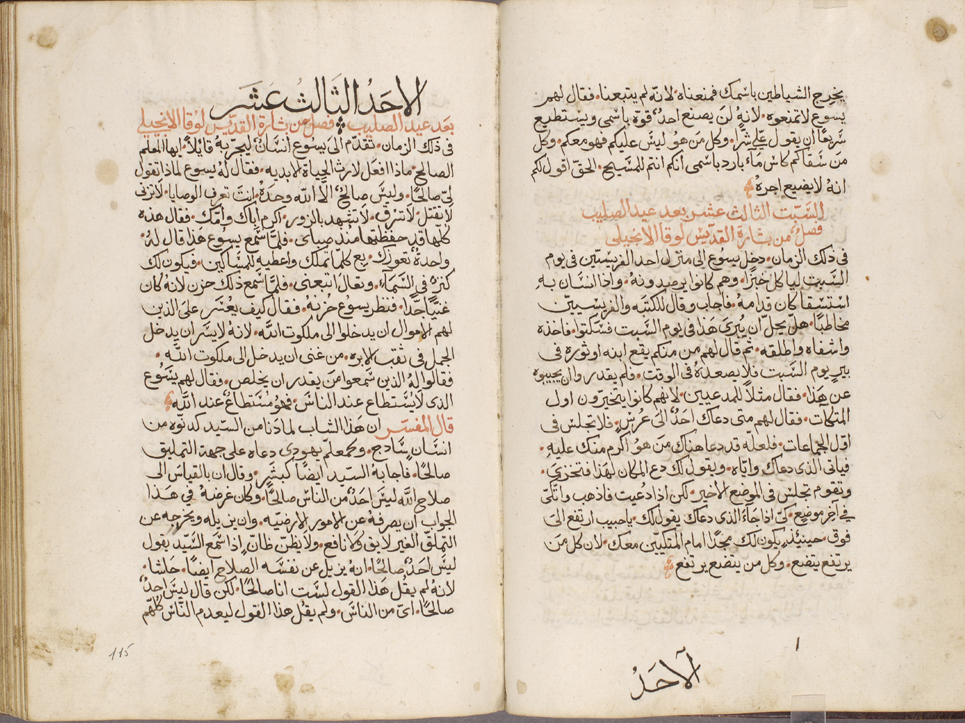 يخرج الشياطين باسمك فمنعناه لانه لم يتبعنا. فقال لهم
يسوع لا تمنعوه. لانه لن يصنع احد قوه باسمي ويستطيع
سريعًا ان يقول علي شرًا. وكل من هو ليس عليكم فهو معكم. وكل
من سقاكم كاس ماء بارد باسمي أنكم انتم للمسيح. الحق اقول لكم
انه لا يضيع اجره
السبت الثالث عشر بعد عيد الصليب
فصل من بشارة القديس لوقا الانجيلي
في ذلك الزمان. دخل يسوع الى منزل احد الفريسيين في يوم
السبت لياكل خبزًا. وهم كانوا يرصدونه. واذا انسان به
استسقا كان قدامه. فاجاب وقال للكتبه والفريسيين
مخاطبًا. هل يحل ان يُبرئ هذا في يوم السبت فسكتوا. فاخذه
واشفاه واطلقه. ثم قال لهم من منكم يقع ابنه او ثوره في
بير يوم السبت فلا يصعده في الوقت. فلم يقدروا ان يجيبوه
عن هذا. فقال مثلاً للمدعيين. لانهم كانوا يتخيرون اول
المتكات. فقال لهم متى دعاك احدٌ الى عُرسٍ. فلا تجلس في
اول الجماعات. فلعله قد دعا هناك من هو اكرم منك عليه.
فياتي الذي دعاك واياه. ويقول لك دع المكان لهذا فتخزى.
وتقوم تجلس في الموضع الاخير. لكن اذا دعيت فاذهب واتكى
في اخر موضع. كي اذا جاء الذي دعاك يقول لك. يا حبيب ارتفع الى
فوق. حينيذٍ يكون لك مجدًا امام المتكيين معك. لان كل من
يرتفع يتضع. وكل من يتضع يرتفع
الاحدُ
الاحدُ الثالثُ عشر
بعد عيد الصليب. فصل من بشارة القديس لوقا الانجيلي
في ذلك الزمان. تقدم الى يسوع انسانٌ ليجربه قايلاً. ايها المعلم
الصالح. ماذا افعل لارث الحياة الابديه. فقال له يسوع لماذا تقول
لي صالحًا. وليس صالحٌ الا الله وحده. انت تعرف الوصايا. لا تزني
لا تقتل. لا تسرق. لا تشهد بالزور. اكرم اباك وامك. فقال هذه
كلها قد حفظتها منذ صباي. ولما سمع يسوع هذا قال له.
واحدةٌ تعوزك. بع كلما تملك واعطيه للمساكين. فيكون لك
كنزٌ في السماء. وتعال اتبعني. فلما سمع ذلك حزن لانه كان
غنيًا جدًا. فنظر يسوع حزنه. فقال كيف يعسر على الذين
لهم الاموال ان يدخلوا الى ملكوت الله. لانه لايسر ان يدخل
الجمل في ثقب الابره. من غني ان يدخل الى ملكوت الله.
فقالوا له الذين سمعوا من يقدر ان يخلص. فقال لهم يسوع
الذي لا يستطاع عند الناس. فهو مستطاع عند الله
قال المفسر ان هذا الشاب لما دنا من السيد كدنوه من
انسان ساذج. وكمعلم يهودي دعاه على جهة التمليق
صالحًا. فاجابه السيد ايضًا كبشرٍ. وقال ان بالقياس الى
صلاح الله ليس احدٌ من الناس صالحًا. وكان غرضه في هذا
الجواب ان يصرفه عن الامور الارضيه. وان يزيله ويخرجه عن
التملق الغير لايق ولا نافع. ولا يظن ظان. اذا سمع السيد يقول
ليس احد صالحًا. انه يزيل عن نفسه الصلاح ايضًا. حاشا.
لانه لم يقل هذا القول ليست انا صالحًا. لكن قال ليس احدٌ
صالحًا. اى من الناس. ولم يقل هذا القول ليعدم الناس كلهم
115